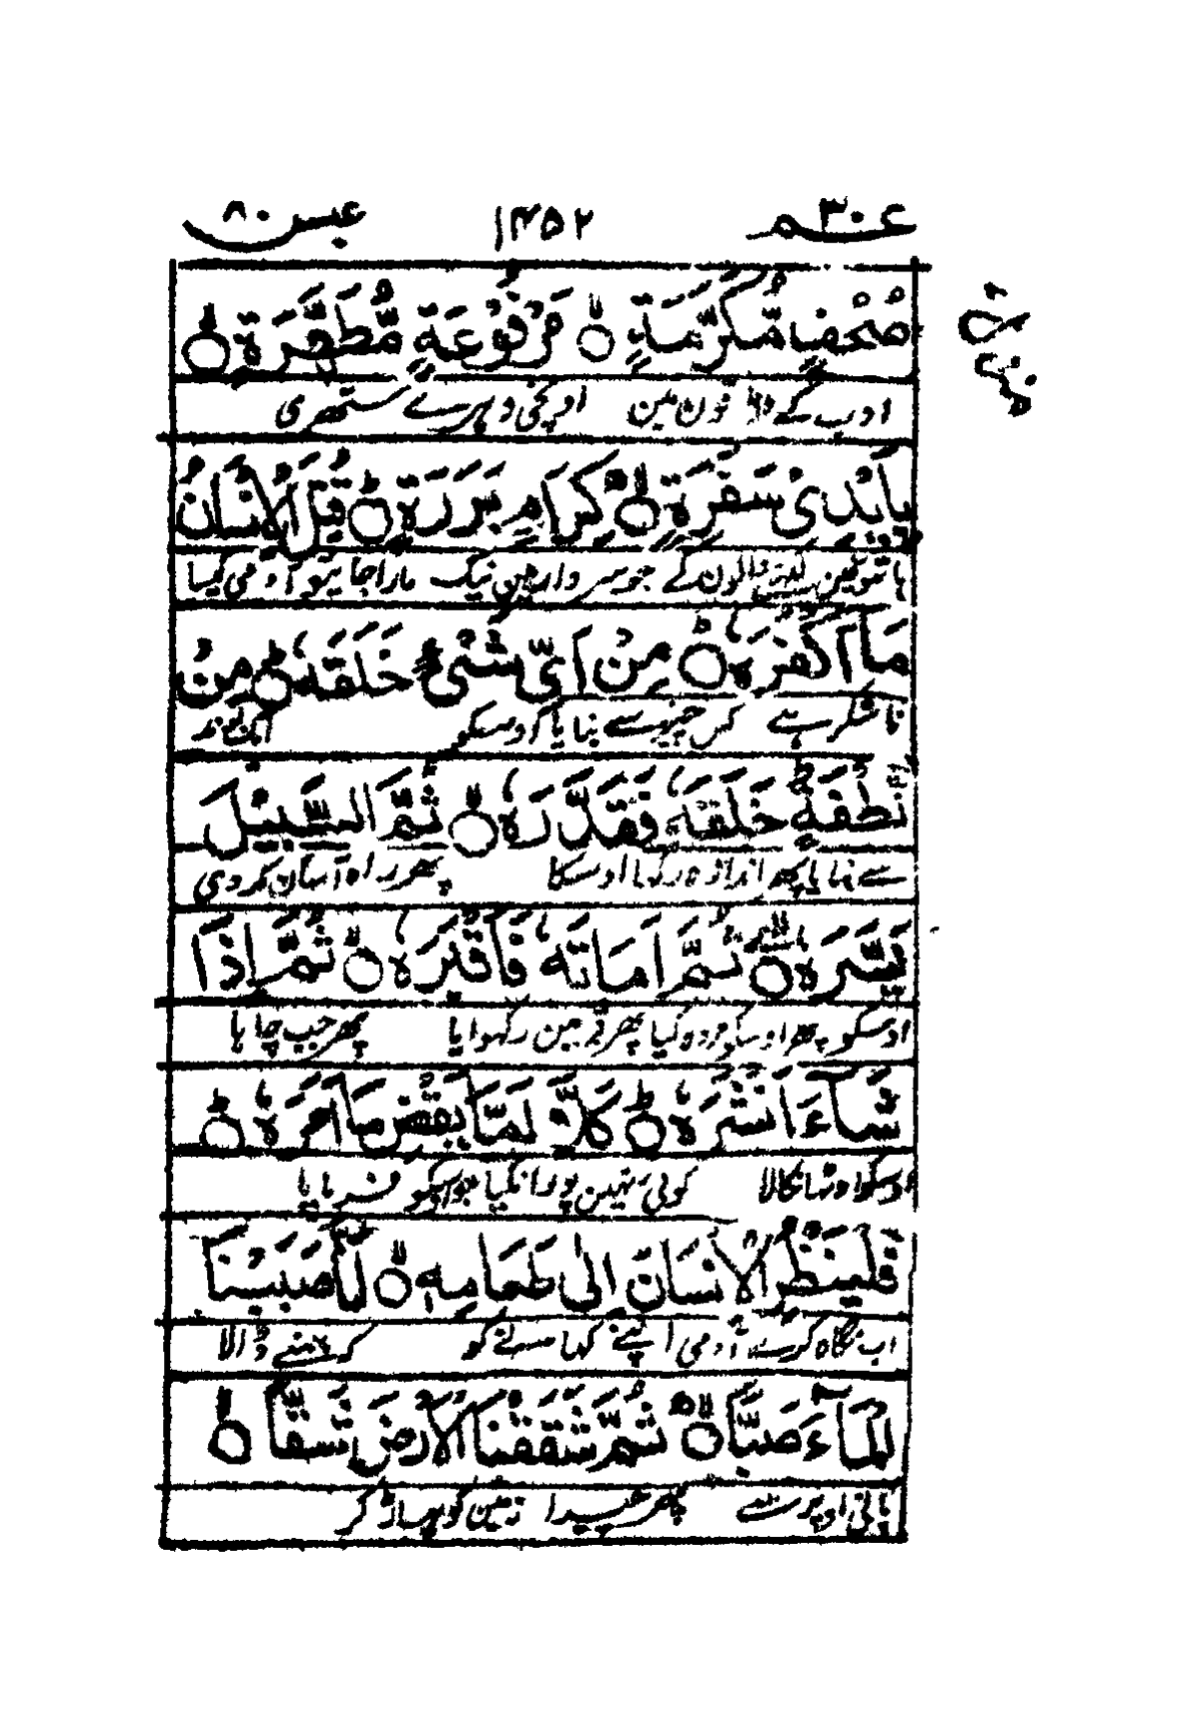 عم ٣٠ ١٤٥٢ عبس ٨٠
صُحُفٍ مُّكَرَّمَةٍ ۝ مَّرْفُوعَةٍ مُّطَهَّرَةٍ ۝
ادب کے ورقون مین اونچی دہرے ستھری
بِأَيْدِي سَفَرَةٍ ۝ كِرَامٍ بَرَرَةٍ ۝ قُتِلَ الْإِنْسَانُ
ہاتھونمین لکھنے والون کے جو سردار ہین نیک مارا جائیو آدمی کیسا
مَا أَكْفَرَهُ ۝ مِنْ أَيِّ شَيْءٍ خَلَقَهُ ۝ مِنْ
ناشکر ہے کس چیز سے بنایا اوسکو ایک بوند
نُّطْفَةٍ خَلَقَهُ فَقَدَّرَهُ ۝ ثُمَّ السَّبِيلَ
سے بنایا پھر اندازہ رکھا اوسکا پھر راہ آسان کر دی
يَسَّرَهُ ۝ ثُمَّ أَمَاتَهُ فَأَقْبَرَهُ ۝ ثُمَّ إِذَا
اوسکو پھر اوسکو مردہ کیا پھر قبر مین رکھوایا پھر جب چاہا
شَآءَ أَنْشَرَهُ ۝ كَلَّا لَمَّا يَقْضِ مَا أَمَرَهُ ۝
اوسکو اوٹھا نکالا کوئی نہین پورا نکیا جو اوسکو فرمایا
فَلْيَنْظُرِ الْإِنْسَانُ إِلَى طَعَامِهِ ۝ أَنَّا صَبَبْنَا
اب نگاہ کرے آدمی اپنے کھانے کو کہ ہمنے ڈالا
الْمَآءَ صَبًّا ۝ ثُمَّ شَقَقْنَا الْأَرْضَ شَقًّا ۝
پانی اوپر سے پھر چیرا زمین کو پھاڑ کر